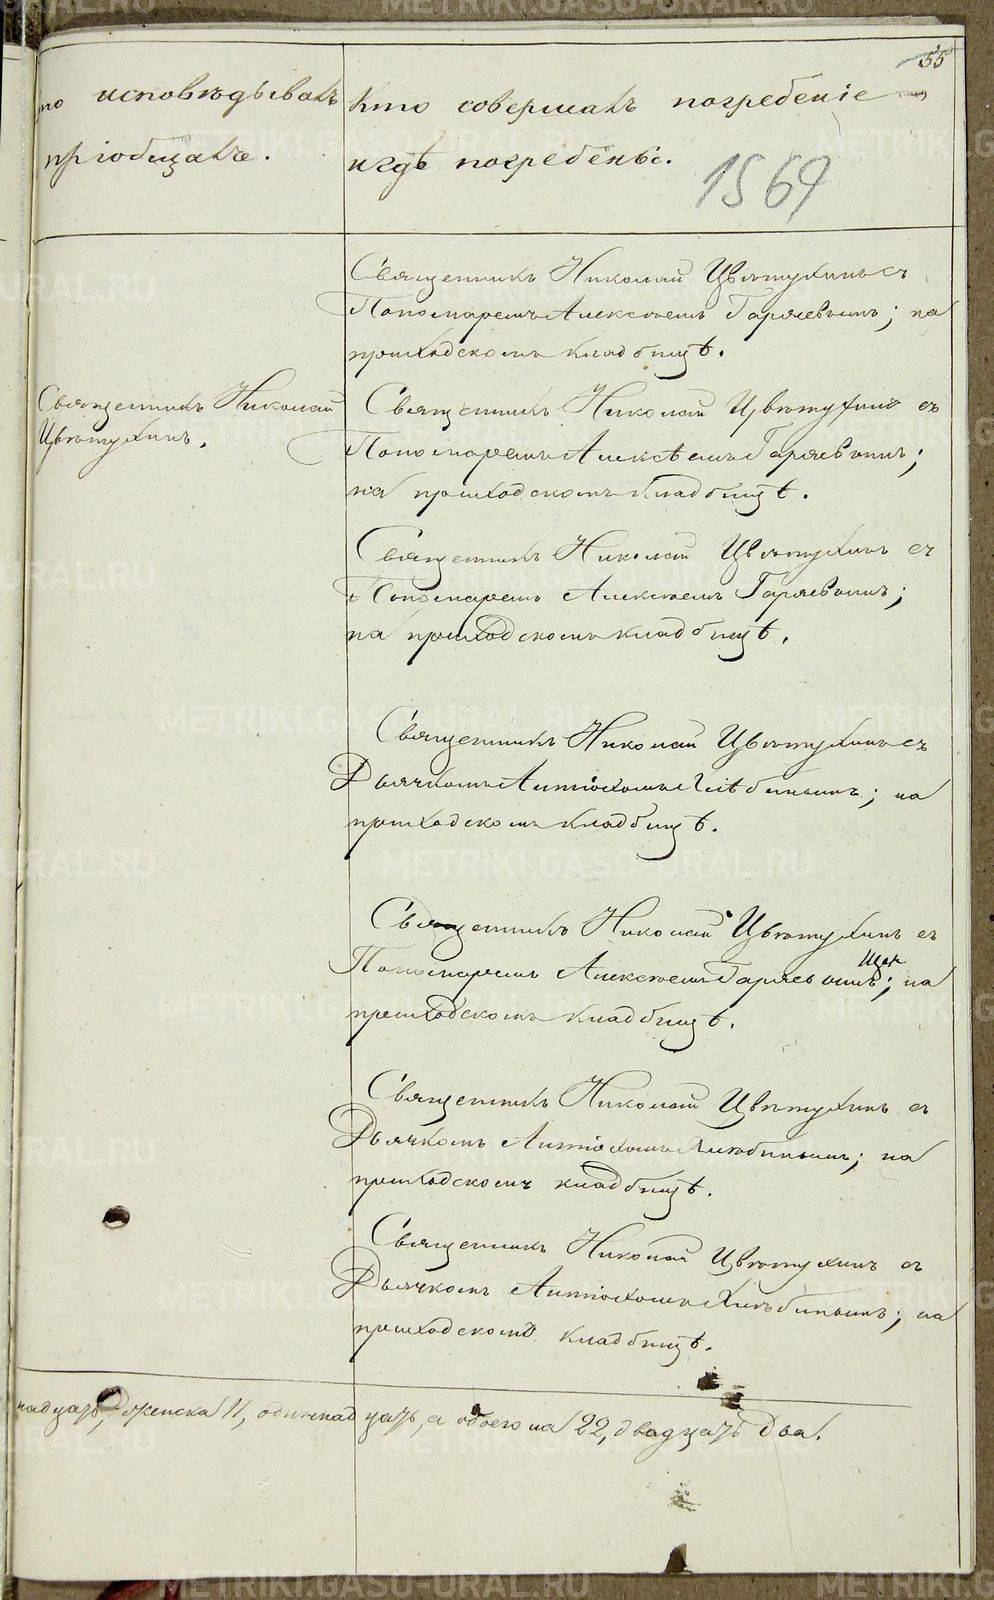 55
то исповѣдывалъ
пріобщалъ.
Кто совершалъ погребеніе
и гдѣ погребены.
1569
Священникъ Николай Цвѣтухинъ съ
Пономаремъ Алексѣемъ Гаряевымъ; на
приходскомъ кладбищѣ.
Священникъ Николай
Цвѣтухинъ.
Священникъ Николай Цвѣтухинъ съ
Пономаремъ Алексѣемъ Гаряевымъ;
на приходскомъ кладбищѣ.
Священникъ Николай Цвѣтухинъ съ
Пономаремъ Алексѣемъ Гаряевымъ;
на приходскомъ кладбищѣ.
Священникъ Николай Цвѣтухинъ съ
Дьячкомъ Антіохомъ Хлѣбинымъ; на
приходскомъ кладбищѣ.
Священникъ Николай Цвѣтухинъ съ
Пономаремъ Алексѣемъ Гаряевымъ; на
приходскомъ кладбищѣ.
Священникъ Николай Цвѣтухинъ съ
Дьячкомъ Антіохомъ Хлѣбинымъ; на
приходскомъ кладбищѣ.
Священникъ Николай Цвѣтухинъ съ
Дьячкомъ Антіохомъ Хлѣбинымъ; на
приходскомъ кладбищѣ.
надцать, женска 11, одиннадцать, а обоего на 22, двадцать два.
METRIKI.GASU-URAL.RU